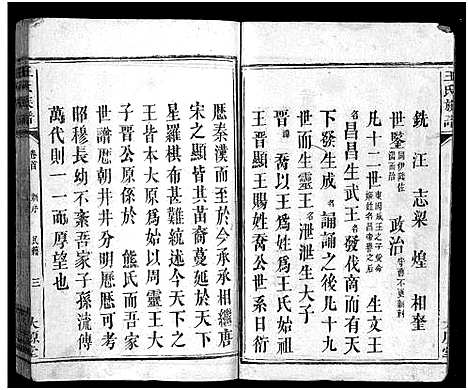 王氏族譜
銑汪志梁煌相奎
世鑒 政治
凡十二世 生文王
昌昌生武王 發伐商而又
下發生成王 誦誦之後凡十九
世而生靈王 泄泄生大子
晉 喬以王爲姓爲王氏始祖
王晉王賜姓喬公世系衍
歷秦漢而至於今承承相繼唐
宋之顯皆其苗裔蔓延於天下
星羅棋布甚難統述今天下之
王皆大原爲始以周靈王大
子晉公原係於 熊氏而吾宗
譜歷朝井井分明歷歷可考
昭穆長幼不紊吾家子孫流傳
萬代則一一而厚望也
王氏族譜
卷首
三
大原堂